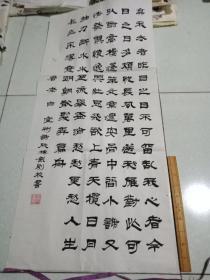 棄我去者昨日之日不可留亂我心者今
日之日多煩憂長風萬里送秋雁對此可
以酣高樓蓬萊文章建安骨中間小謝又
清發俱懷逸興壯思飛欲上青天攬日月
抽刀斷水水更流舉杯銷愁愁更愁人生
在世不稱意明朝散髮弄扁舟
李白宣州謝朓樓餞別校書